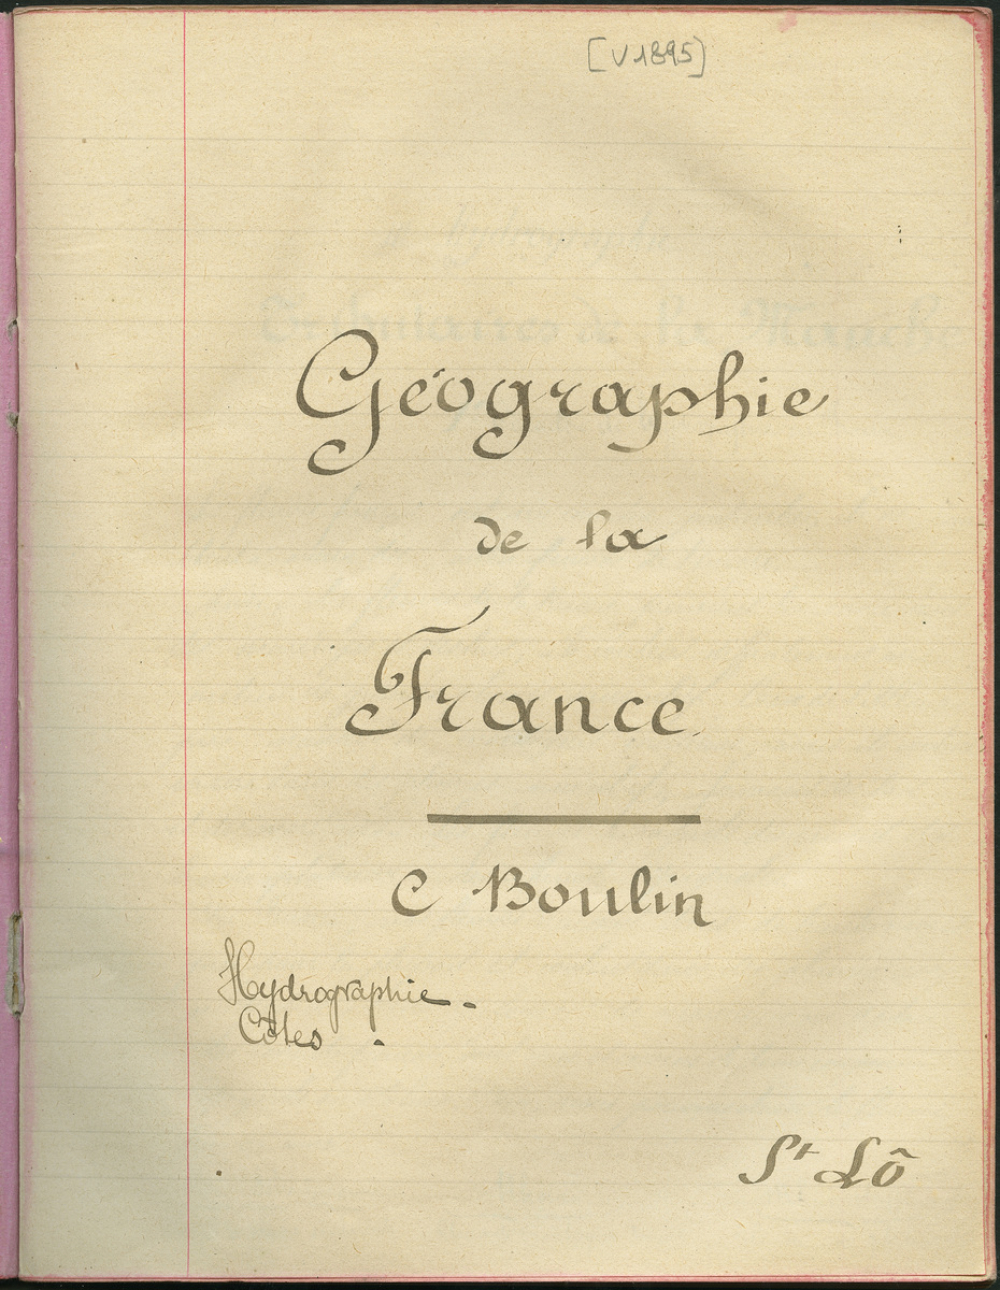 [V 1895]
Géographie
de la
France
C Boulin
Hydrographie.
Côtes .
St Lô